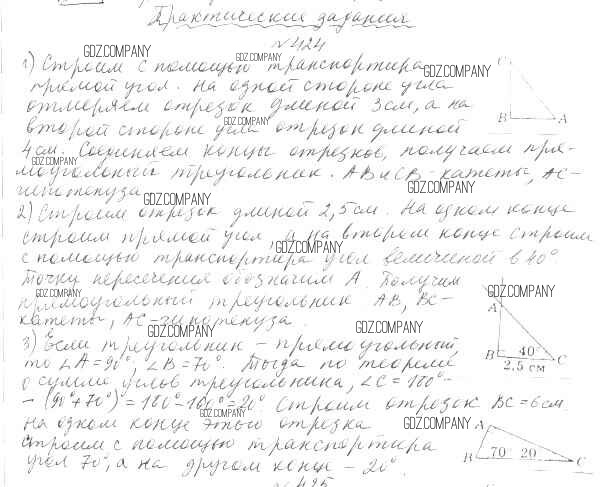 Практические задания
№ 424
GDZ.COMPANY
1) Строим с помощью транспортира
GDZ.COMPANY
GDZ.COMPANY
прямой угол. На одной стороне угла
отмеряем отрезок длиной 3 см, а на
GDZ.COMPANY
второй стороне угла отрезок длиной
4 см. Соединяем концы отрезков, получаем пря-
GDZ.COMPANY
моугольный треугольник. AB и CB - катеты, AC -
гипотенуза
GDZ.COMPANY
GDZ.COMPANY
C
B
A
2) Строим отрезок длиной 2,5 см. На одном конце
строим прямой угол, а на втором конце строим
GDZ.COMPANY
с помощью транспортира угол величиной в 40°
Точку пересечения обозначим A. Получим
GDZ.COMPANY
GDZ.COMPANY
прямоугольный треугольник AB, BC -
катеты, AC - гипотенуза.
GDZ.COMPANY
GDZ.COMPANY
A
B
40°
C
2,5 см
3) Если треугольник - прямоугольный,
то ∠A = 90°, ∠B = 70°. Тогда по теореме
о сумме углов треугольника, ∠C = 180° -
- (90° + 70°) = 180° - 160° = 20°. Строим отрезок BC = 6 см.
GDZ.COMPANY
На одном конце этого отрезка
GDZ.COMPANY
строим с помощью транспортира
угол 70°, а на другом конце - 20°.
GDZ.COMPANY
A
B
70°
20
C
№ 425